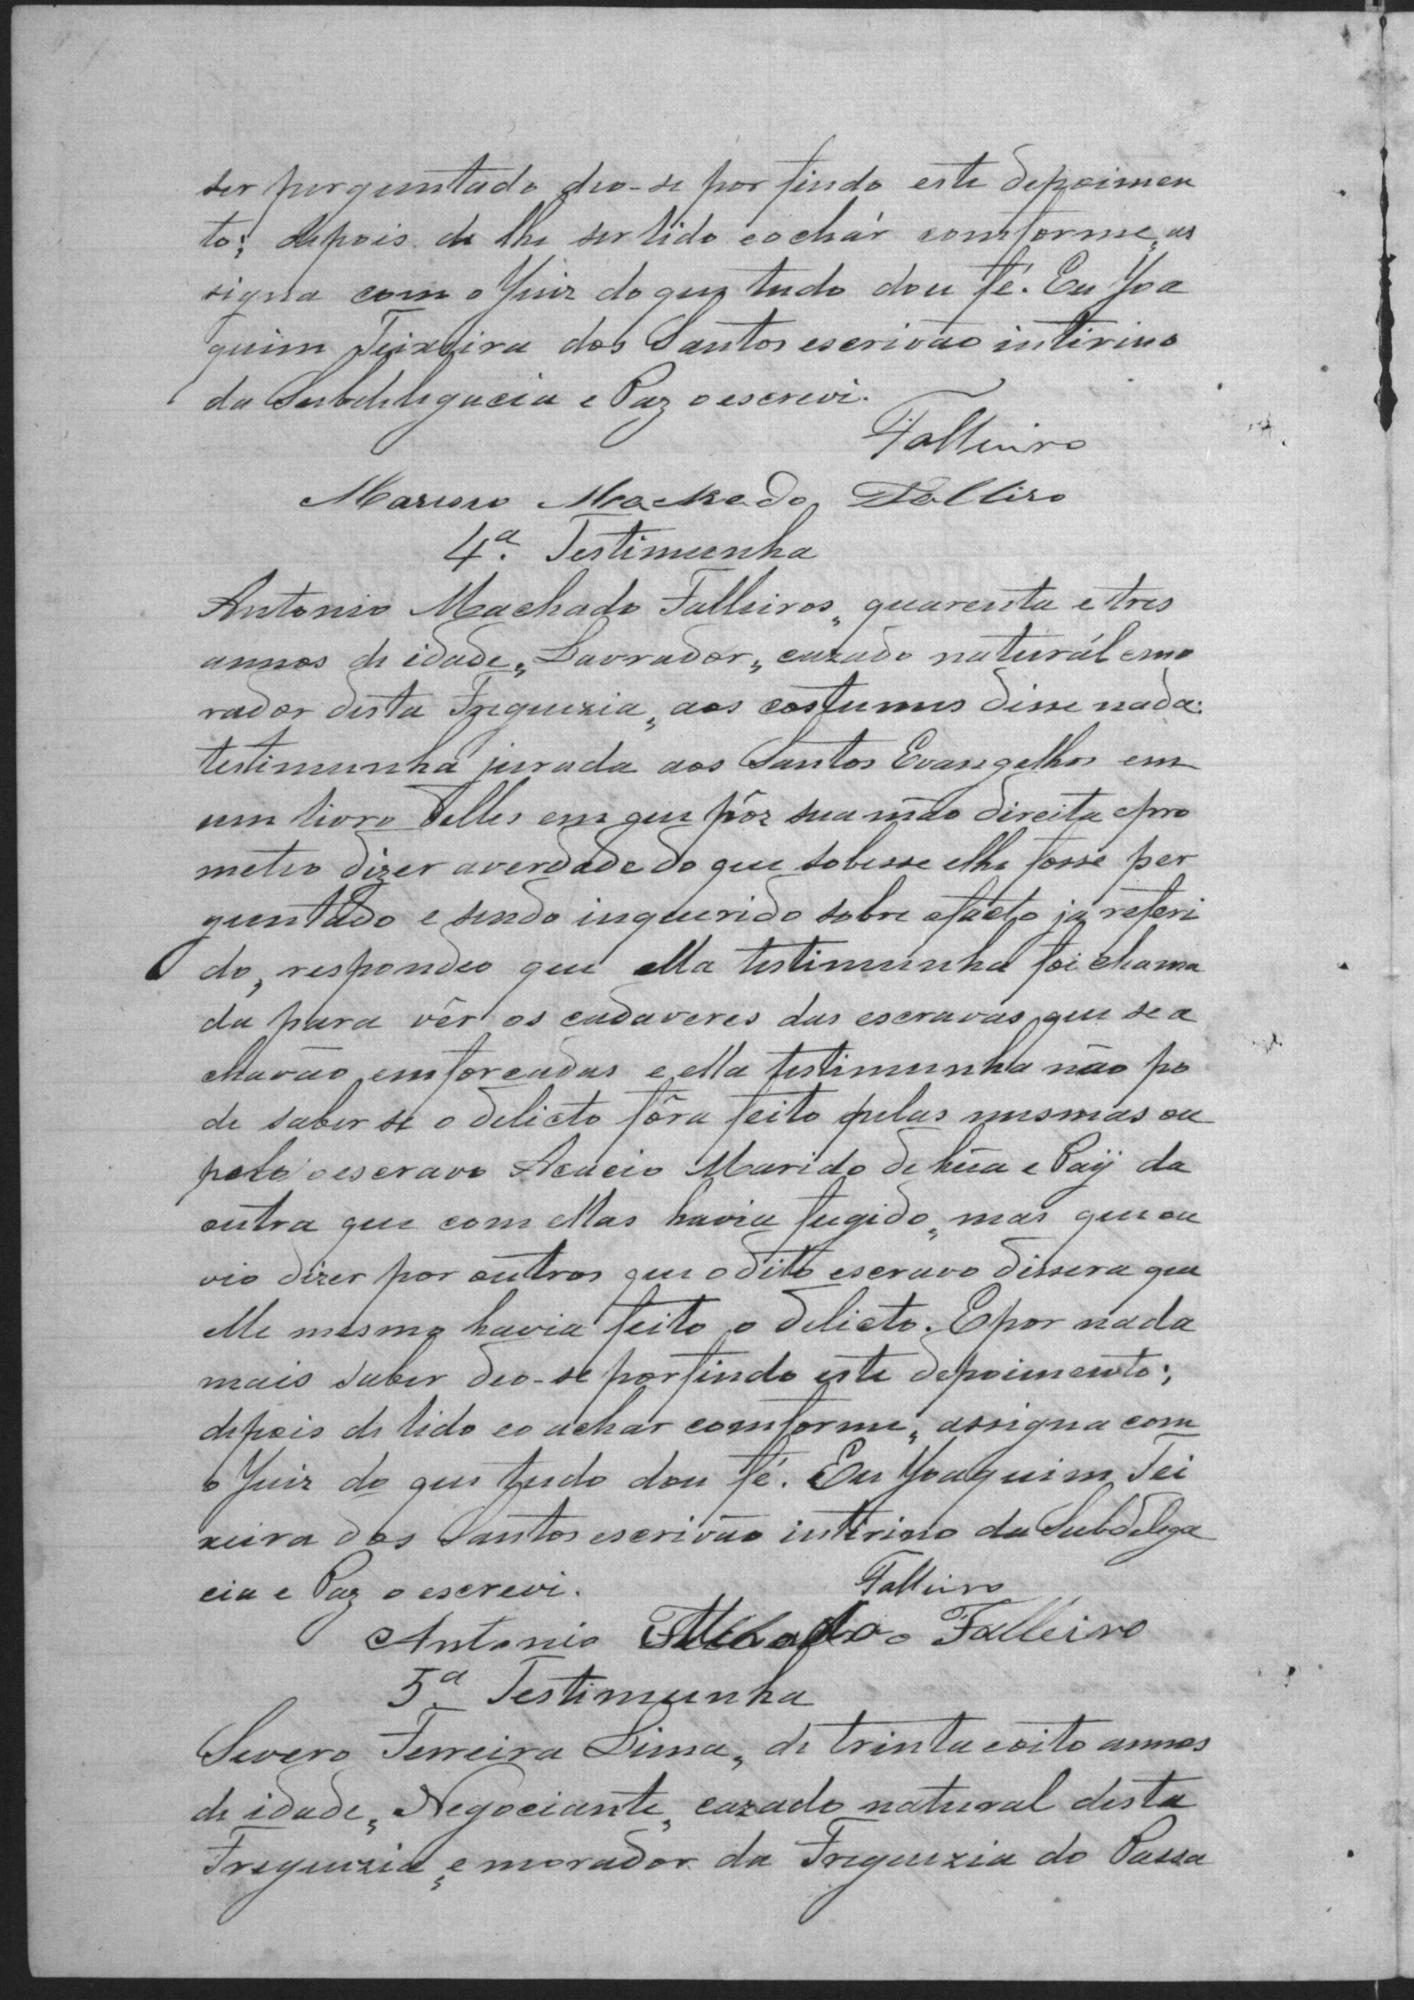 ser perguntado deo-se por findo este depoimen
to; depois de lhe ser lido e o achár comforme, as
signa com o Juiz do que tudo dou fé. Eu Joa
quim Teixeira dos Santos escrivão interino
da Subdelegacia e Paz o escrevi.
Falleiro
Machado Falliro
4ª Testimunha
Antonio Machado Falleiros, quarenta e tres
annos de idade, Lavrador, cazado naturál e mo
rador desta Freguezia, aos costumes disse nada:
testimunha jurada aos Santos Evangelhos em
um livro delles em que pôz sua mão direita e pro
meteo dizer a verdade do que sobesse e lhe fosse per
guntado e sendo inquerido sobre o facto já referi
do, respondeo que ella testimunha foi chama
da para vêr os cadaveres das escravas que se a
chavão emforcadas e ella testimunha não po
de saber se o delicto fôra feito pelas mesmas ou
pelo o escravo Acacio Marido de húa e Paÿ da
outra que com ellas havia fugido, mas que ou
vio dizer por outros que o dito escravo dissera que
elle mesmo havia feito o delicto. E por nada
mais saber deo-se por findo este depoimento;
depois de lido e o achar comforme, assigna com
o Juiz do que tudo dou fé. Eu Joaquim Tei
xeira dos Santos escrivão interino da Subdelega
cia e Paz o escrevi.
Falleiro
Antonio Machado Falleiro
5ª Testimunha
Severo Ferreira Lima, de trinta e oito annos
de idade, Negociante, cazado natural desta
Freguezia, e morador da Freguezia do Passa